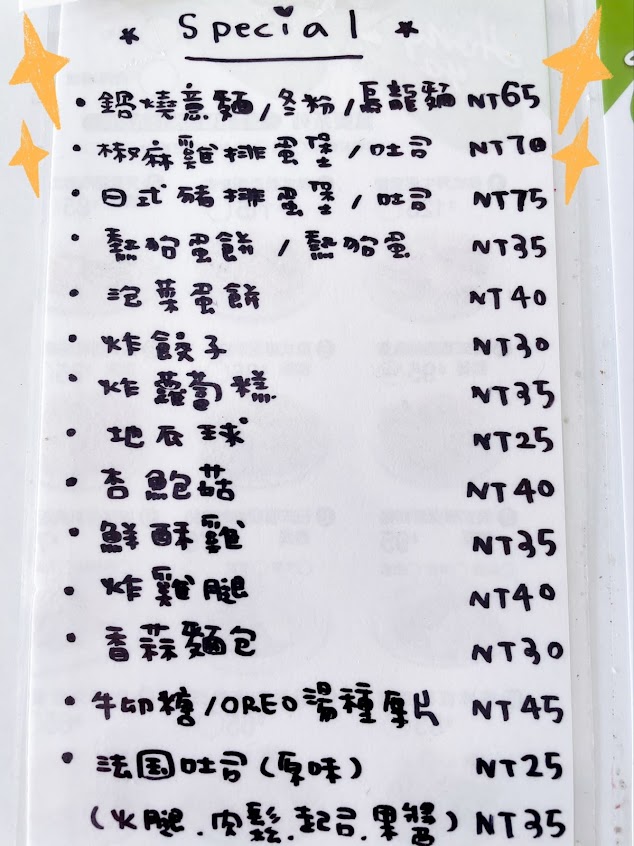 * Special *
• 鍋燒意麵/冬粉/烏龍麵 NT65
• 椒麻雞排蛋堡/吐司 NT70
• 日式豬排蛋堡/吐司 NT75
• 熱狗蛋餅/熱狗蛋 NT35
• 泡菜蛋餅 NT40
• 炸餃子 NT30
• 炸蘿蔔糕 NT35
• 地瓜球 NT25
• 杏鮑菇 NT40
• 鮮酥雞 NT35
• 炸雞腿 NT40
• 香蒜麵包 NT30
• 牛奶糖/OREO湯種厚片 NT45
• 法国吐司(原味) NT25
(火腿.肉鬆.起司.果醬) NT35